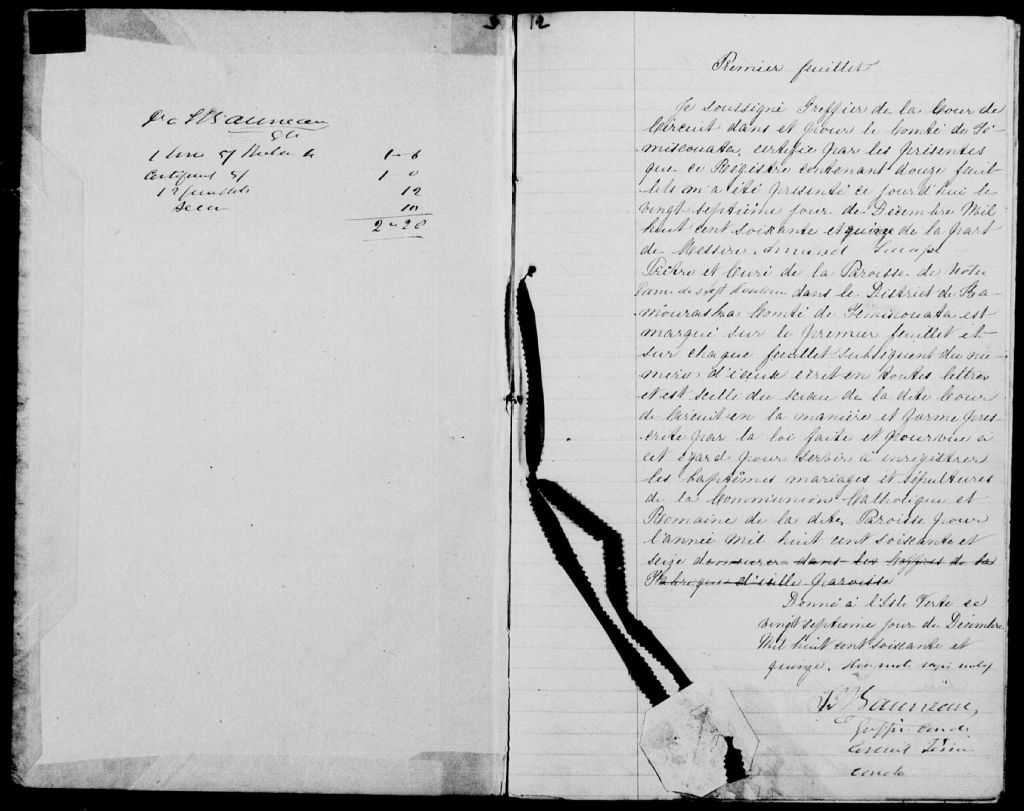 1 - 6
1 - 0
12
2 - 20
12
Premier feuillet
Je soussigné Greffier de la Cour de
Circuit dans et pour le Comté de Té
miscouata, certifie par les présentes
que ce Régistre contenant douze feuil
lets m'a été présenté ce jourd'hui le
vingt septième jour de Décembre Mil
huit cent soixante et quinze de la part
de Messire
Prêtre et Curé de la Paroisse de Notre
Dame de sept douleurs dans le District de Ka-
mouraska Comté de Témiscouata est
marqué sur le premier feuillet et
sur chaque feuillet subséquent du nu-
mero d'iceux écrit en toutes lettres
et est scellé du sceau de la dite Cour
de Circuit en la manière et forme pres
crite par la loi faite et pourvue à
cet égard pour servir à enregistrer
les baptêmes mariages et sépultures
de la Communion Catholique et
Romaine de la dite Paroisse pour
l'année mil huit cent soixante et
seize demeurer dans les coffres de la
Fabrique d'icelle paroisse
Donné à l'Isle Verte ce
vingt septième jour de Décembre
Mil huit cent soixante et
quinze.
Greffier
Circuit